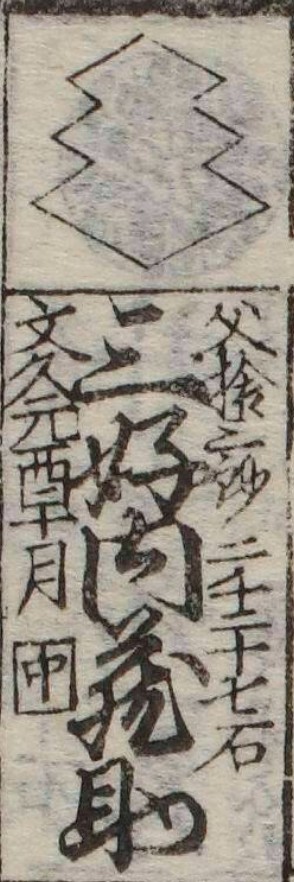 父捨三郎 二千二十七石
三好内蔵助
文久元酉十月 中